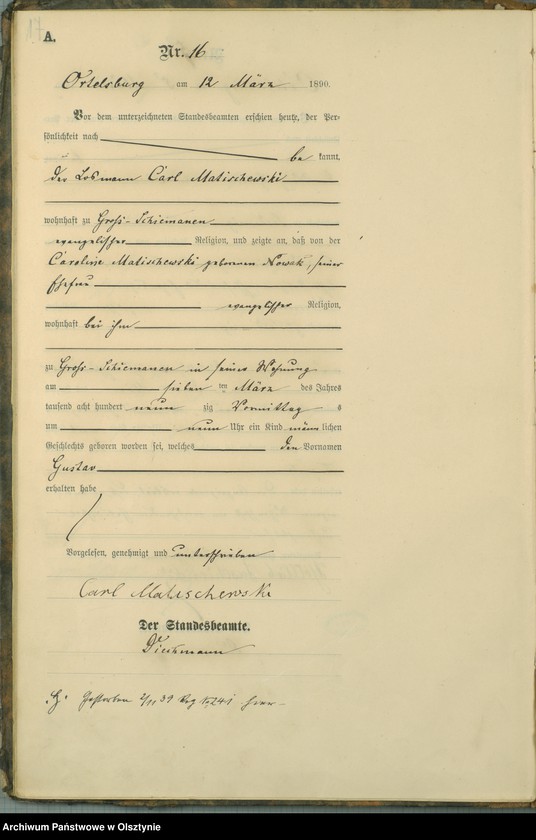 A.
Nr. 16
Ortelsburg am 12 März 1890.
Vor dem unterzeichneten Standesbeamten erschien heute, der Per-
sönlichkeit nach
be kannt,
der Losmann Carl Matischewski
wohnhaft zu Groß-Schiemanen
evangelischer Religion, und zeigte an, daß von der
Caroline Matischewski geborenen Nowek, seiner
Ehefrau
evangelischer Religion,
wohnhaft bei ihm
zu Groß-Schiemanen in seiner Wohnung
am sieben ten März des Jahres
tausend acht hundert neun zig Vormittag s
um neun Uhr ein Kind männlichen
Geschlechts geboren worden sei, welches den Vornamen
Gustav
erhalten habe
Vorgelesen, genehmigt und unterschrieben
Carl Matischewski
Der Standesbeamte.
Dieckmann
Gestorben 2/11 39 Reg No 241 hier
Archiwum Państwowe w Olsztynie